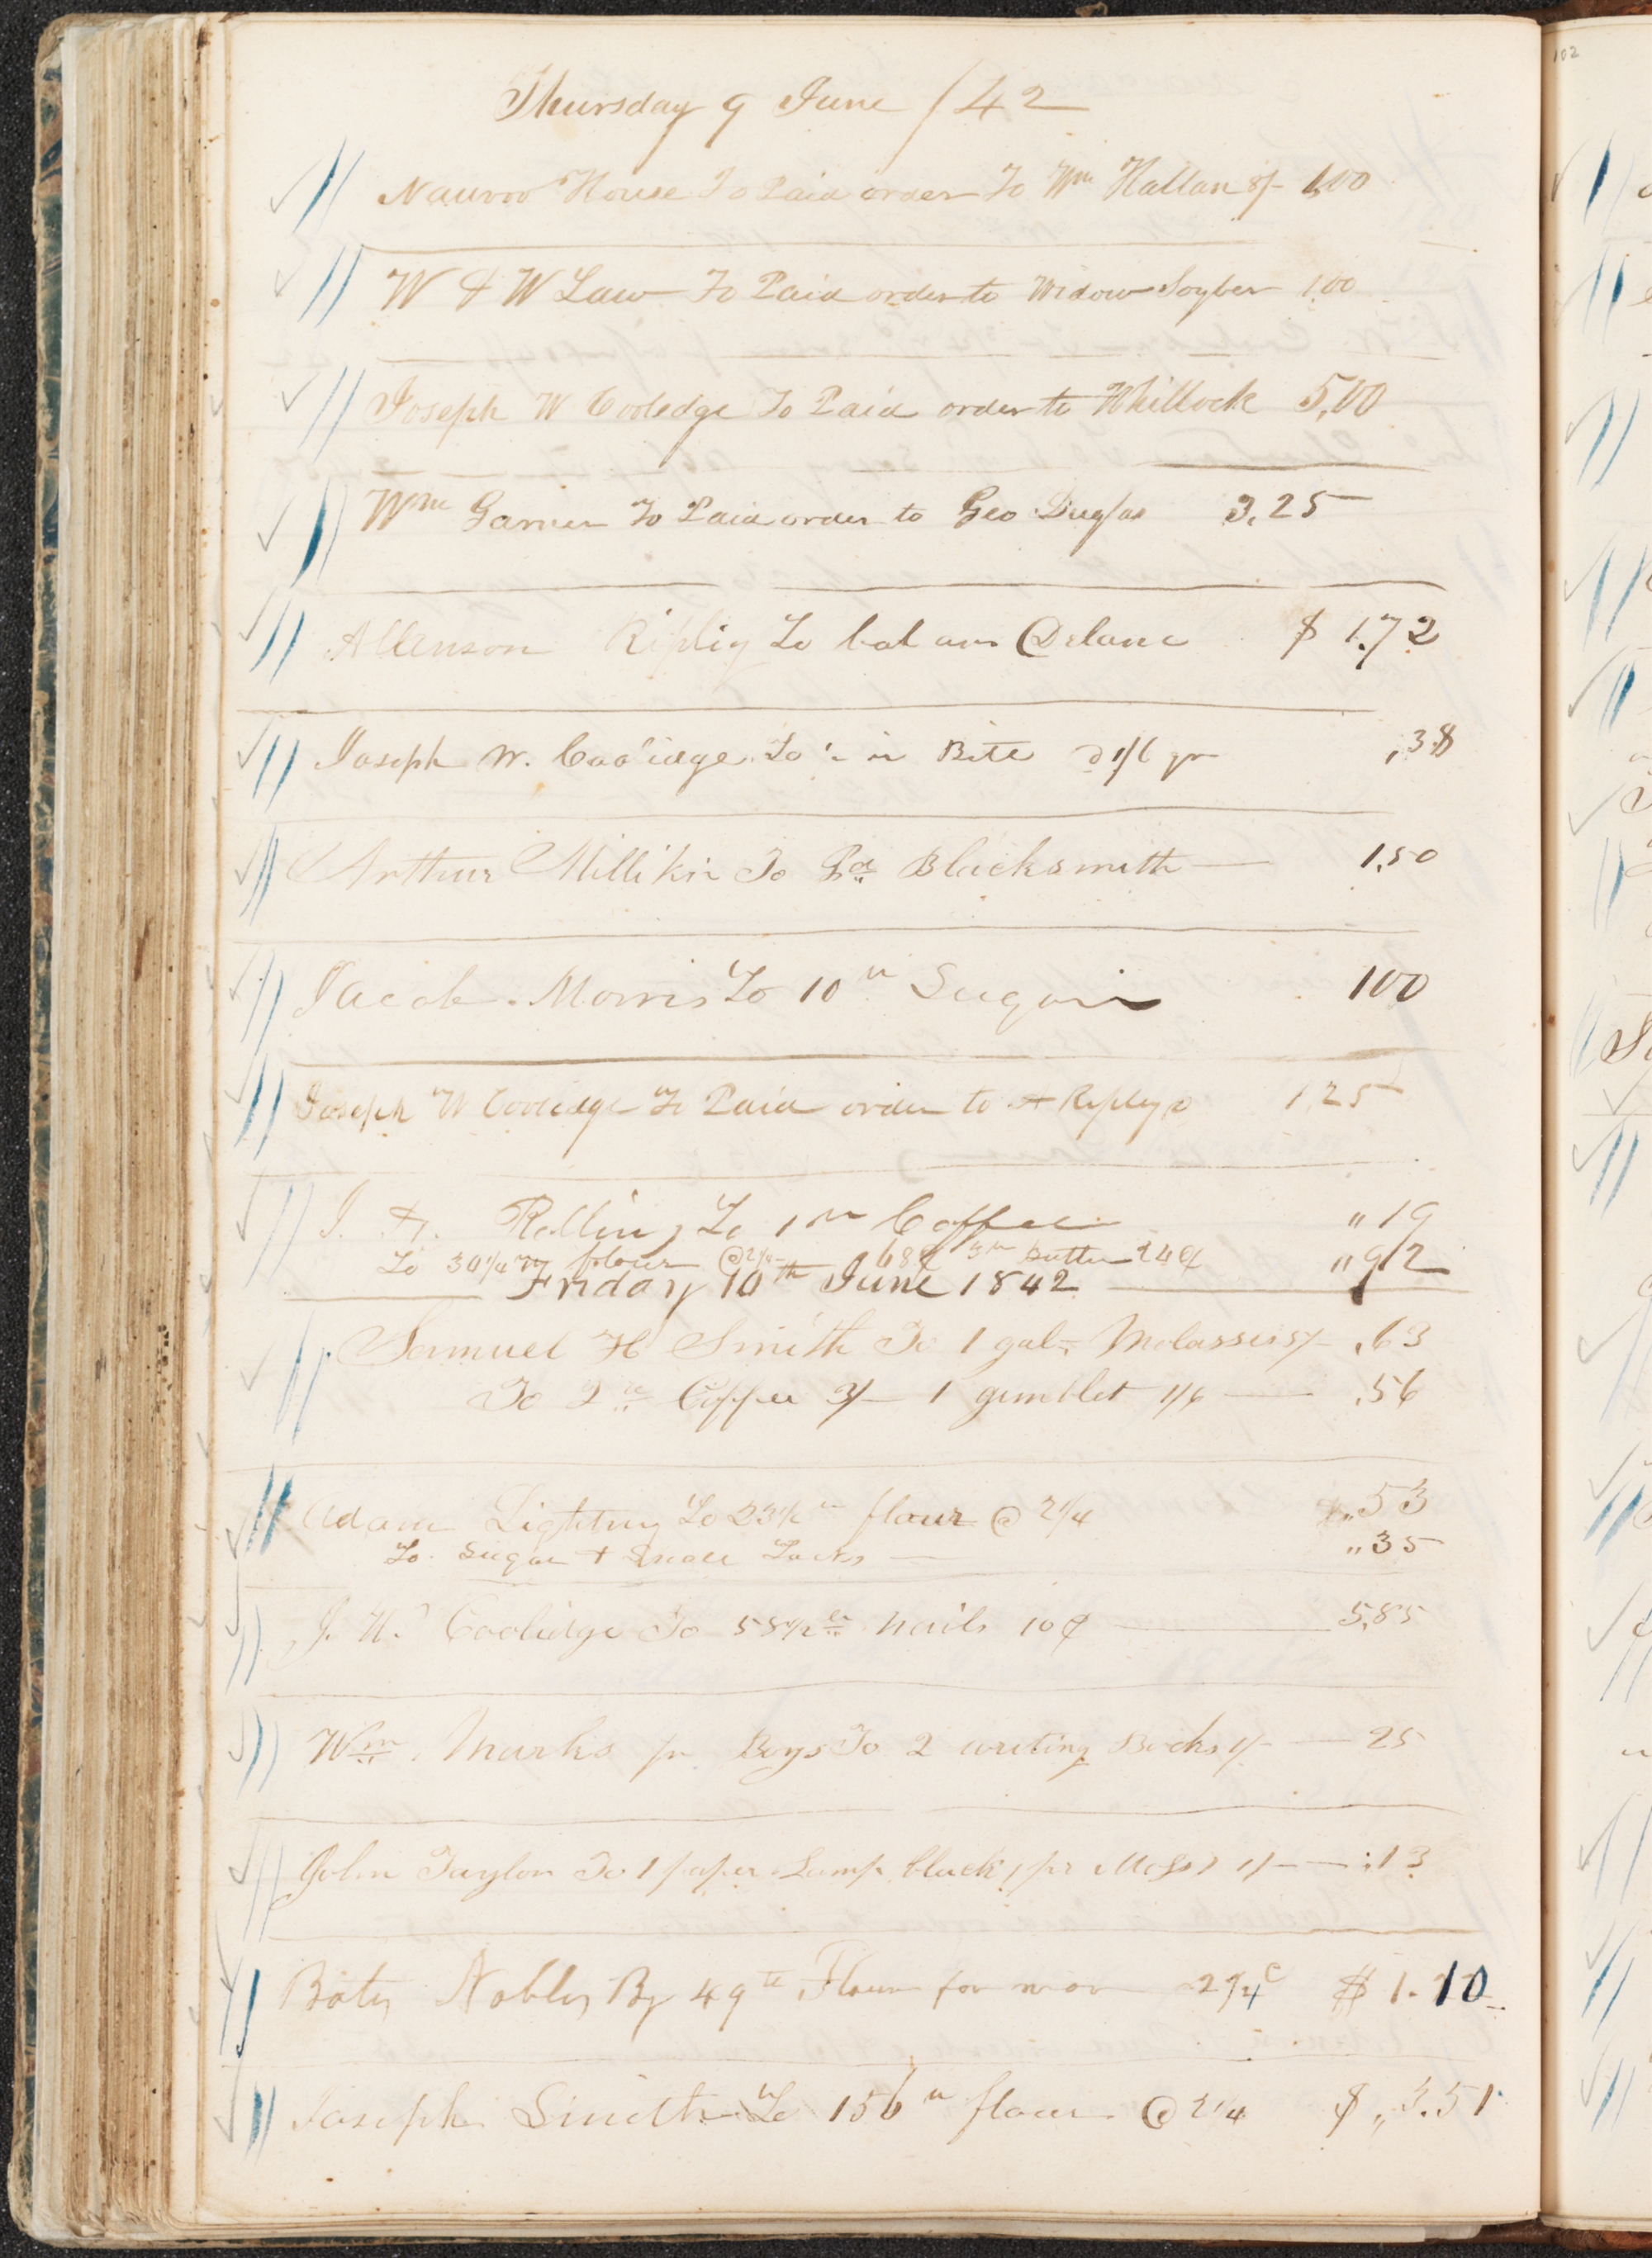 Thursday 9 June /42
Nauvoo House To Paid order To Wm Hallan 8/- 1,00
W & W Law To Paid order to Widow 1.00
Joseph W Cooledge To Paid order to Whitlock 5,00
Wm Garner To Paid order to Geo Duglas 3.25
Allenson Ripley To bal am $ 1.72
Joseph W. Coolidge To Bitts 1/6 pr ,38
Arthur Millikin To Pd Blacksmith 1.50
Jacob Morris To 10 lb Sugar 100
Joseph W Cooledge To Paid order to A Repley 1 25
J. A. To 1 lb Coffee " 19
To 30 1/4 lb flour @ 2 1/4 68¢ lb butter 24¢ " 92
Friday 10th June 1842
Samuel H Smith To 1 gal. Molasses 5/- .63
To 2 lb Coffee 3/- 1 gimblet 1/6 .56
Adam Lightny To 23 1/2 lb flour @ 2 1/4 ,,53
To Sugar & Tacks ,,35
J. W. Coolidge To 58 1/2 lb nails 10¢ 5,85
Wm. Marks pr Boys To 2 writing Books 1/- 25
John Taylor To 1 paper Lamp black, pr 1/- :13
Bates Nobles By 49 lb Flour for 2 1/4 c $ 1.10
Joseph Smith To 156 lb flour @ 2 1/4 $ ,, 3.51
102